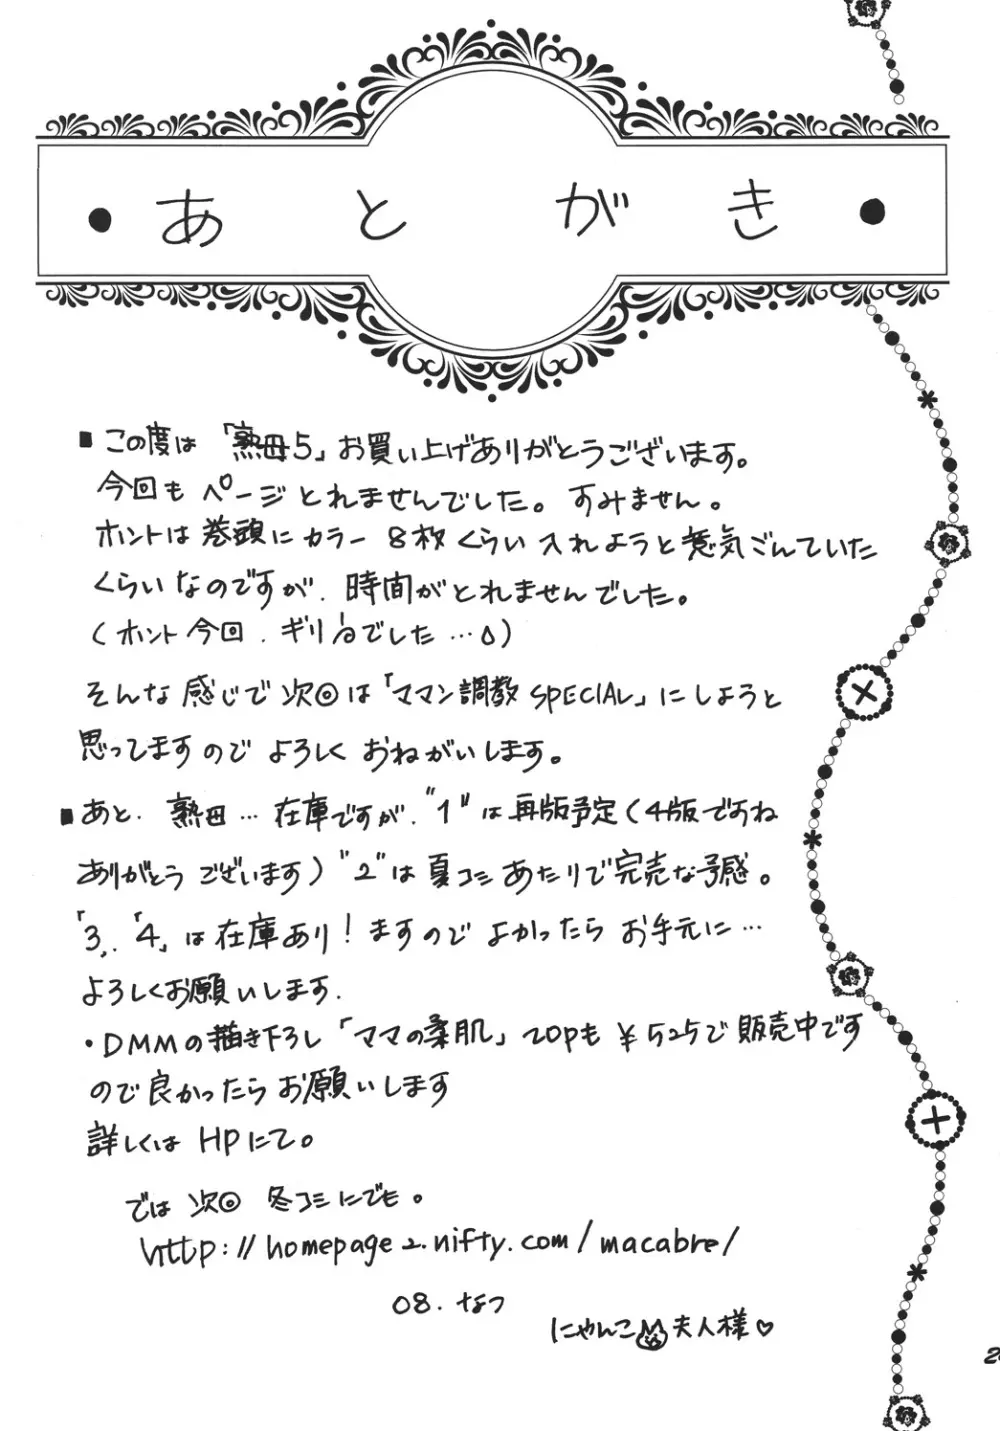 ・あとがき・
■この度は「熟母5」お買い上げありがとうございます。
今回もページとれませんでした。すみません。
ホントは巻頭にカラー8枚くらい入れようと意気ごんでいた
くらいなのですが、時間がとれませんでした。
(ホント今回、ギリギリでした…)
そんな感じで次回は「ママン調教SPECIAL」にしようと
思ってますのでよろしくおねがいします。
■あと、熟母…在庫ですが、"1"は再版予定(4版ですね
ありがとうございます)"2"は夏コミあたりで完売な予感。
「3」、「4」は在庫あり!ますのでよかったらお手元に…
よろしくお願いします.
・DMMの描き下ろし「ママの柔肌」20Pも¥525で販売中です
ので良かったらお願いします
詳しくはHPにて。
では次回冬コミにでも。
http://homepage2.nifty.com/macabre/
08.なつ
にゃんこ夫人様♡